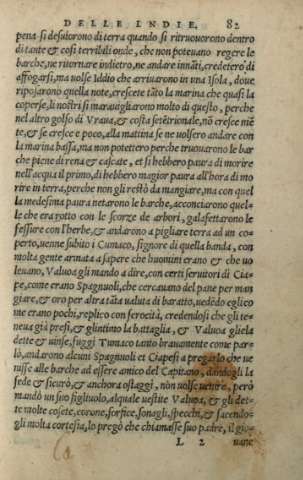 DELLE INDIE. 82
pena si desuiorono di terra quando si ritruouorono dentro
di tante & cosi terribili onde, che non poteuano regere le
barche, ne ritornare indietro, ne andare innāti, credeterō di
affogarsi, ma uolse Iddio che arriuarono in una Isola, doue
riposarono quella note, crescete tāto la marina che quasi la
coperse, li nostri si marauigliarono molto di questo, perche
nel altro golfo di Vraua, & costa setētrionale, nō cresce niē
te, & se cresce e poco, alla mattina se ne uolsero andare con
la marina bassa, ma non potettero perche truouarono le bar
che piene di rena & cascate, et si hebbero paura di morire
nell'acqua il primo, di hebbero magior paura all'hora di mo
rire in terra, perche non gli restò da mangiare, ma con quel
la medesima paura netarono le barche, acconciarono quel-
le che era rotto con le scorze de arbori, galafettarono le
fessure con l'herbe, & andarono a pigliare terra ad un co-
perto, uenne subito i Tumaco, signore di quella banda, con
molta gente armata a sapere che huomini erano & che uo
leuano, Valuoa gli mando a dire, con certi seruitori di Cia-
pe, come erano Spagnuoli, che cercauano del pane per man
giare, & oro per altra tāta ualuta di baratto, uedēdo egli co
me erano pochi, replico con ferocità, credendosi che gli te-
neua già presi, & gl'intimo la battaglia, & Valuoa gliela
dette & uinse, fuggi Tumaco tanto brauamente come par-
lò, andarono alcuni Spagnuoli et Ciapesi a pregarlo che ue
nisse alle barche ad essere amico del Capitano, dandogli la
fede & sicurò, & anchora ostaggi, non uolse uenire, però
mandò un suo figliuolo, al quale uestite Valuoa, & gli det-
te molte cosete, corone, forfice, sonagli, specchi, & facendo-
gli molta cortesia, lo pregò che chiamasse suo padre, il gio-
L 2 uane